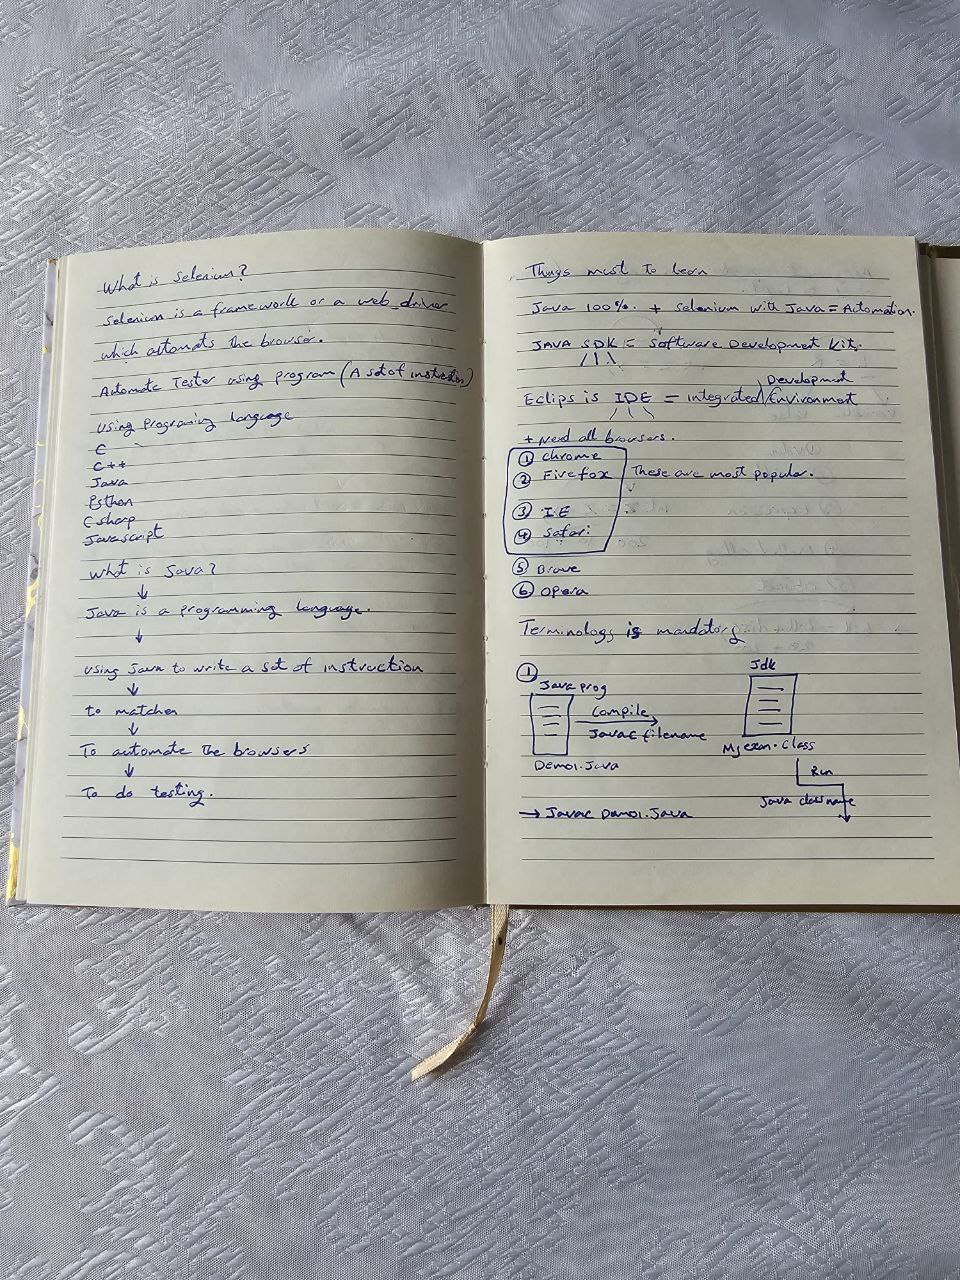 What is Selenium?
Selenium is a framework or a web_driver
which automats the browser.
Automate Tester using program (A set of instruction)
using Programing language
C
C++
Java
Python
C sharp
Javascript
what is Java?
↓
Java is a programming language.
↓
using Java to write a set of instruction
↓
to matcher
↓
To automate the browsers
↓
To do testing.
Things must to learn
Java 100%. + Selenium with Java = Automation.
JAVA SDK = Software Development Kit.
Development
Eclips is IDE = integrated / Environment
+ Need all browsers.
① chrome
② Firefox These are most popular.
③ I.E
④ Safari
⑤ Brave
⑥ opera
Terminology is mandatory
① Jdk
Java prog
Compile
Javac filename
Demo1.Java
class
Run
Java classname
→ Javac Demo1.Java